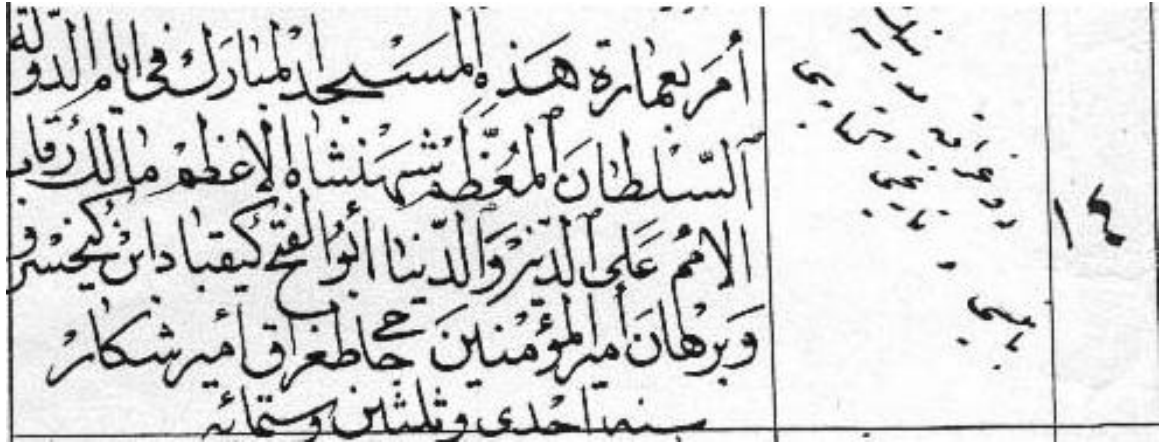 أمَرَ بعمارة هَذِهِ المَسْجِد المبارَك فى ايام الدّولة
السّلطانَ المُعَظَّم شهَنشاه الاعظم مالك رقاب
الامُم عَلى الدّين وَالدّنيا أبو الفتح كيقباد ابن كيخسرو
وَبرهانَ أمير المؤمنينَ حاجى طغراق أمير شكار
سنه احدى وثلثين وستمائه
١٤